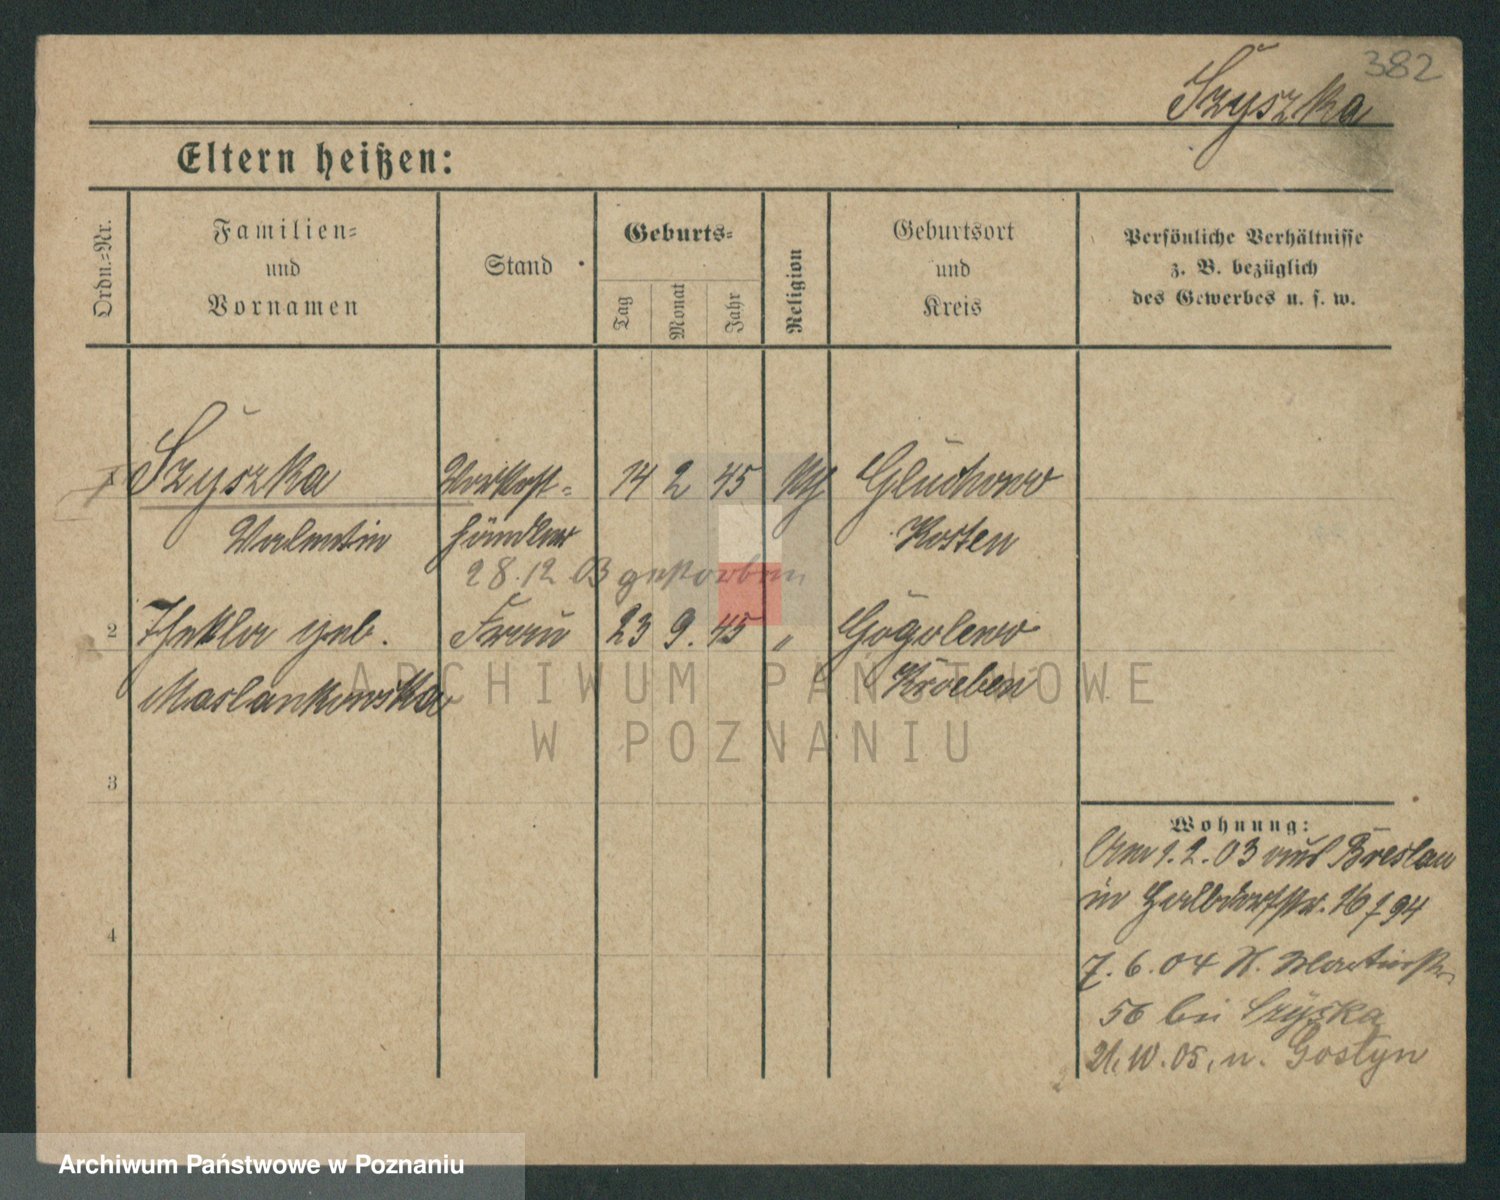 382
Szyszka
Eltern heißen:
Ordn.-Nr.
Familien-
und
Vornamen
Stand
Geburts-
Tag
Monat
Jahr
Religion
Geburtsort
und
Kreis
Persönliche Verhältnisse
z. B. bezüglich
des Gewerbes u. s. w.
1 Szyszka Vorkost- 14 2 45 kth Gluchowo
Valentin händler Kosten
28.12.03 gestorben
2 Thekla geb. Frau 23 9. 45 " Gogolewo
Maslankowska Kroeben
ARCHIWUM PAŃSTWOWE
W POZNANIU
3
Wohnung:
Am 1.2.03 aus Breslau
in Halbdorfstr. 16 / 94
4
7.6.04 St. Martinstr.
56 bei Szyska
21.10.05. n. Gostyn
Archiwum Państwowe w Poznaniu